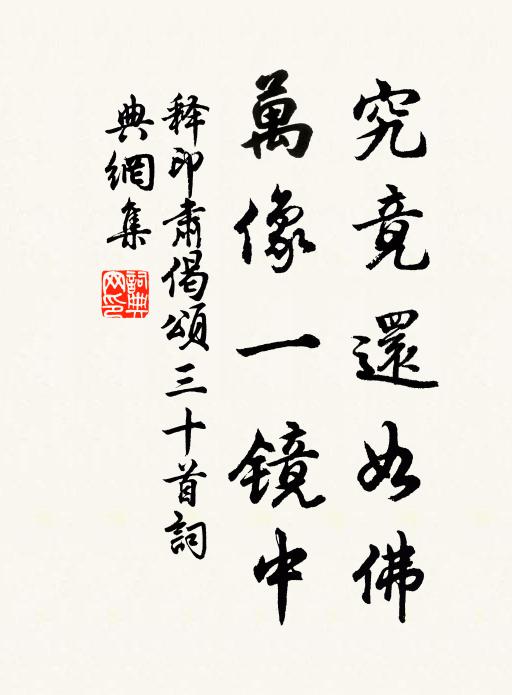 究竟還如佛
萬像一鏡中
释印肃偈頌三十首詞
典網集
詞典网印